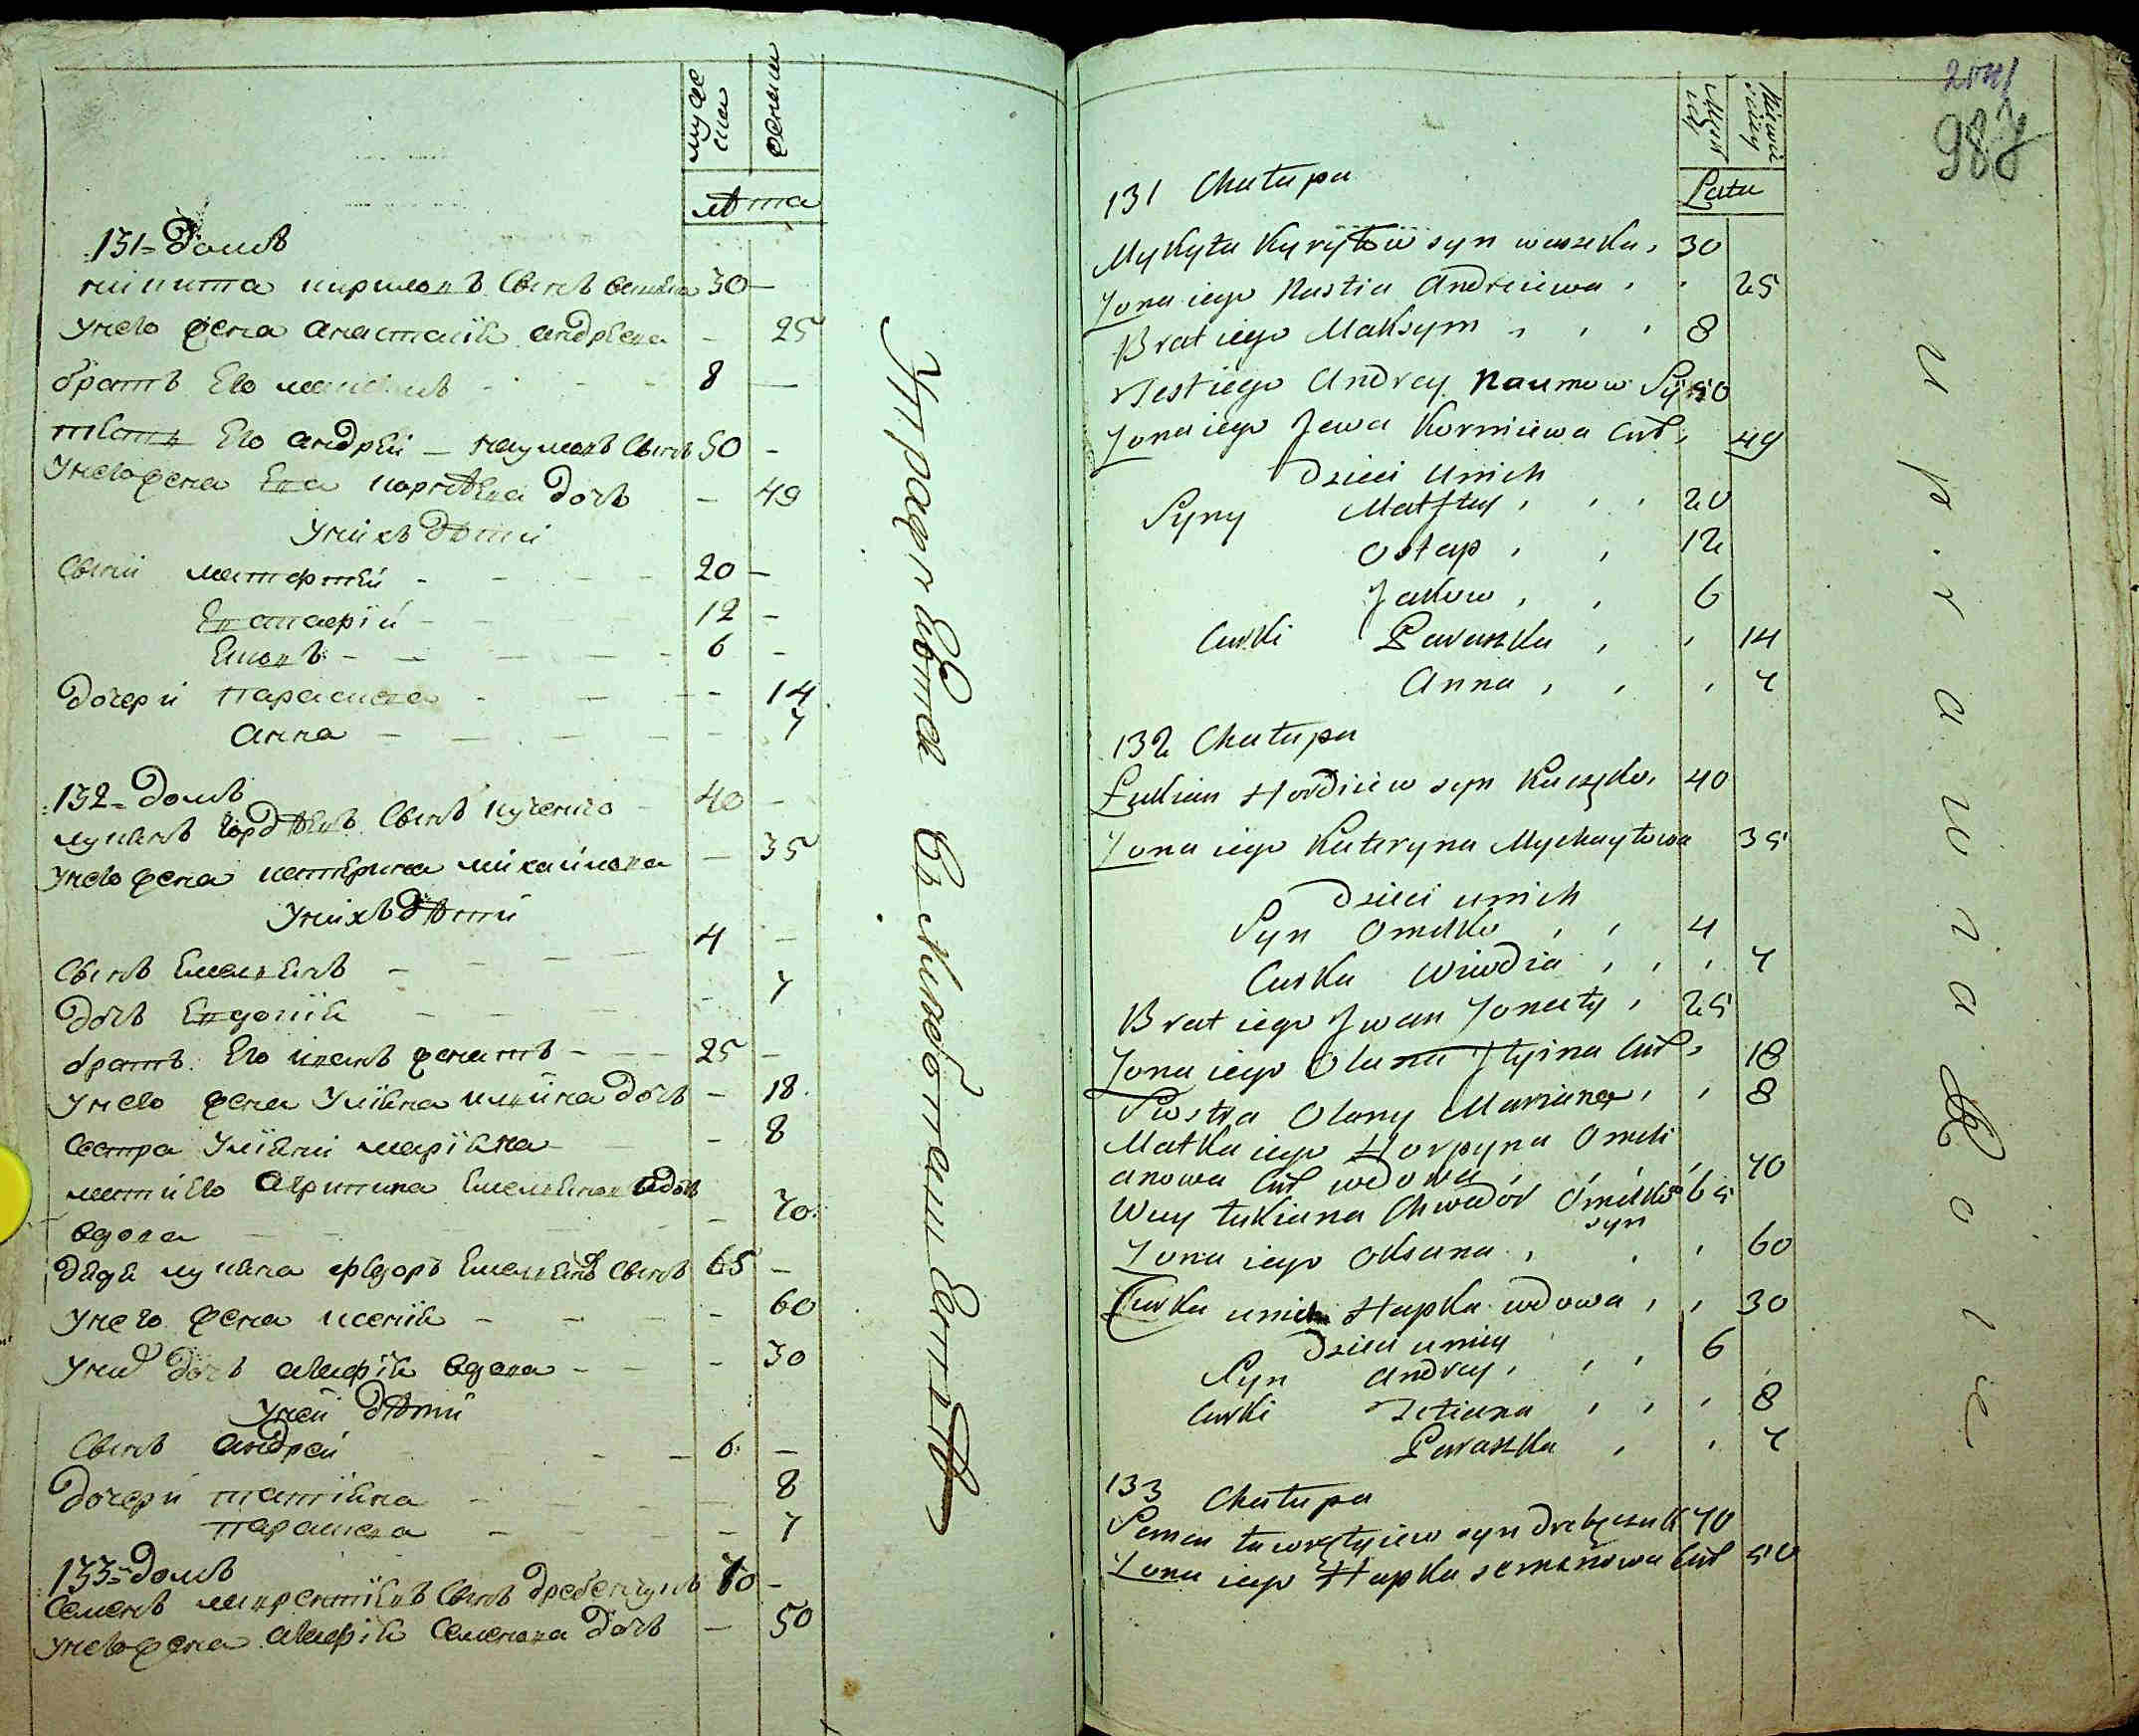 муже
ска
женска
лѣта
131 = домъ
никита кириловъ сынъ 30 —
унего жена анастасия андреева — 25
братъ его максимъ 8 —
тесть его андрей — наумовъ сынъ 50 —
унего жена ева корнѣева дочь — 49
унихъ дѣти
сыни матфтей 20 —
евстафiй 12 —
6 —
дочери параскева — 14
анна — 7
132 = домъ
лукианъ гордѣевъ сынъ кученко 40 —
унего жена катерина михайлова — 35
унихъ дѣти
сынъ емельянъ 4 —
дочь евдокия — 7
братъ его иванъ женатъ 25 —
унего жена улiяна илiина дочь — 18
сестра улiяни марiяна — 8
мати его агрипина емельянова дочь
вдова — 70
дядя лукяна федоръ емельяновъ сынъ 65 —
унего жена ксения — 60
уних дочь агафiя вдова — 30
уней дѣти
сынъ андрей 6 —
дочери татiяна — 8
параскева — 7
133 = домъ
семенъ лаврентiевъ сынъ 70 —
унего жена агафiя семенова дочь — 50
2041
987
Latu
131 Chałupa
Mykyta Kyryłow syn waszka 30
Zona iego Nastia Andreiewa 25
Brat iego Maksym 8
Test iego Andrey Naumow Syn 50
Zona iego Jewa Korniewa Cur 49
Dzieci unich
Syny Matftey 20
Ostap 12
Jakow 6
Curki Paraszka 14
Anna 7
132 Chałupa
Łukian Hordiiew syn Kuczyko 40
Zona iego Kateryna Mychayłowa 35
Dzieci unich
Syn Omelko 4
Curka Wiwdia 7
Brat iego Jwan Zonaty 25
Zona iego Olana Jłyina Cur 18
Siostra Olany Maryana 8
Matka iego Horpyna Omeli
anowa Cur wdowa 70
Wuy Łukiana Chwedor Omelkow 65
syn
Zona iego Oksana 60
Curka unich Hapka wdowa 30
Dzieci uniey
Syn Andrey 6
Curki Tetiana 8
Paraszka 7
133 Chałupa
Semen Ławrentyiew syn 70
Zona iego Hapka semenowa Cur 50